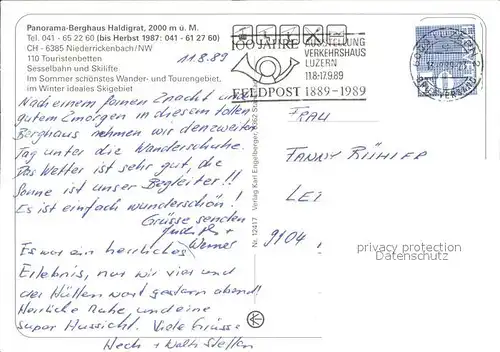 Panorama-Berghaus Haldigrat, 2000 m ü. M.
Tel. 041 - 65 22 60 (bis Herbst 1987: 041 - 61 27 60)
CH - 6385 Niederrickenbach/NW
110 Touristenbetten
Sesselbahn und Skilifte
Im Sommer schönstes Wander- und Tourengebiet,
im Winter ideales Skigebiet
11.8.89
Nach einem feinen Znacht und
gutem Zmorgen in diesem tollen
Berghaus nehmen wir den zweiten
Tag unter die Wanderschuhe.
Das Wetter ist sehr gut, die
Sonne ist unser Begleiter!!
Es ist einfach wunderschön!
Grüsse senden
Werner
Es war ein herrliches
Erlebnis, nur wir vier und
der Hüttenwart gestern abend!
Herrliche Ruhe und eine
super Aussicht. Viele Grüsse
Nr. 12417 Verlag Karl Engelberger, 6362
100 JAHRE
FELDPOST 1889-1989
AUSSTELLUNG
VERKEHRSHAUS
LUZERN
11.8-17.9.89
6000 LUZERN 2
FRAU
FANNY BÜHLER
LEI
9104
copyright protected
Datenschutz